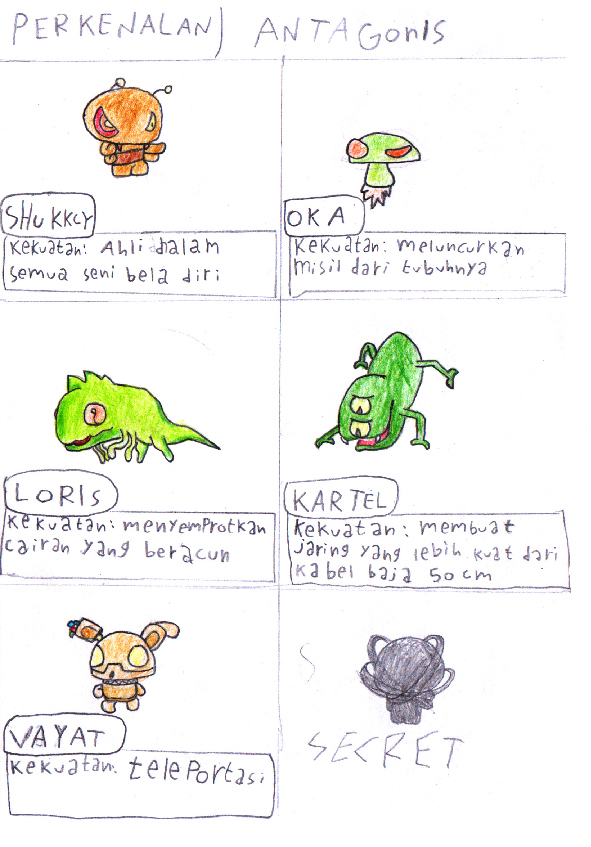 PERKENALAN) ANTAGONIS
SHUKKCY
Kekuatan: Ahli dalam
semua seni bela diri
OKA
Kekuatan: meluncurkan
misil dari tubuhnya
LORIS
Kekuatan: menyemprotkan
cairan yang beracun
KARTEL
Kekuatan: membuat
jaring yang lebih kuat dari
kabel baja 50 cm
VAYAT
Kekuatan: teleportasi
S
SECRET